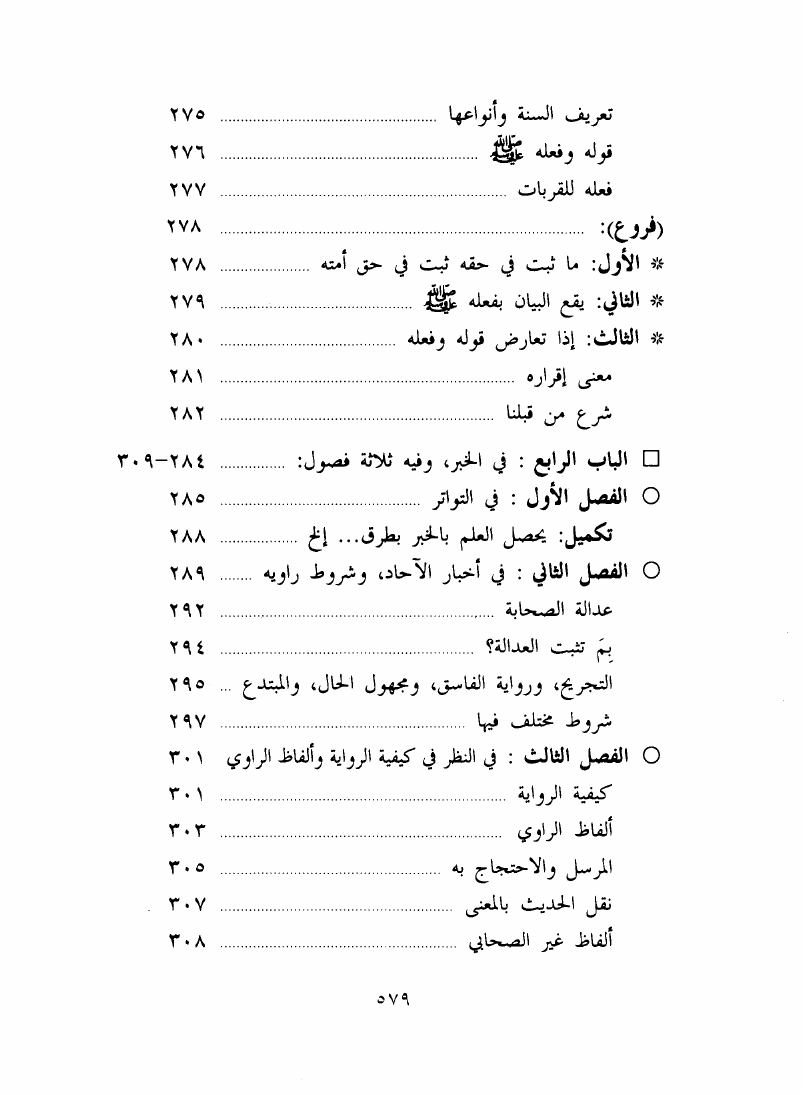 تعريف السنة وأنواعها ........ ٢٧٥
قوله وفعله ﷺ ........ ٢٧٦
فعله للقربات ........ ٢٧٧
(فروع): ........ ٢٧٨
* الأول: ما ثبت في حقه ثبت في حق أمته ........ ٢٧٨
* الثاني: يقع البيان بفعله ﷺ ........ ٢٧٩
* الثالث: إذا تعارض قوله وفعله ........ ٢٨٠
معنى إقراره ........ ٢٨١
شرع من قبلنا ........ ٢٨٢
□ الباب الرابع : في الخبر، وفيه ثلاثة فصول: ........ ٢٨٤-٣٠٩
○ الفصل الأول : في التواتر ........ ٢٨٥
تكميل: يحصل العلم بالخبر بطرق... إلخ ........ ٢٨٨
○ الفصل الثاني : في أخبار الآحاد، وشروط راويه ........ ٢٨٩
عدالة الصحابة ........ ٢٩٢
بِمَ تثبت العدالة؟ ........ ٢٩٤
التجريح، ورواية الفاسق، ومجهول الحال، والمبتدع ... ٢٩٥
شروط مختلف فيها ........ ٢٩٧
○ الفصل الثالث : في النظر في كيفية الرواية وألفاظ الراوي ٣٠١
كيفية الرواية ........ ٣٠١
ألفاظ الراوي ........ ٣٠٣
المرسل والاحتجاج به ........ ٣٠٥
نقل الحديث بالمعنى ........ ٣٠٧
ألفاظ غير الصحابي ........ ٣٠٨
٥٧٩